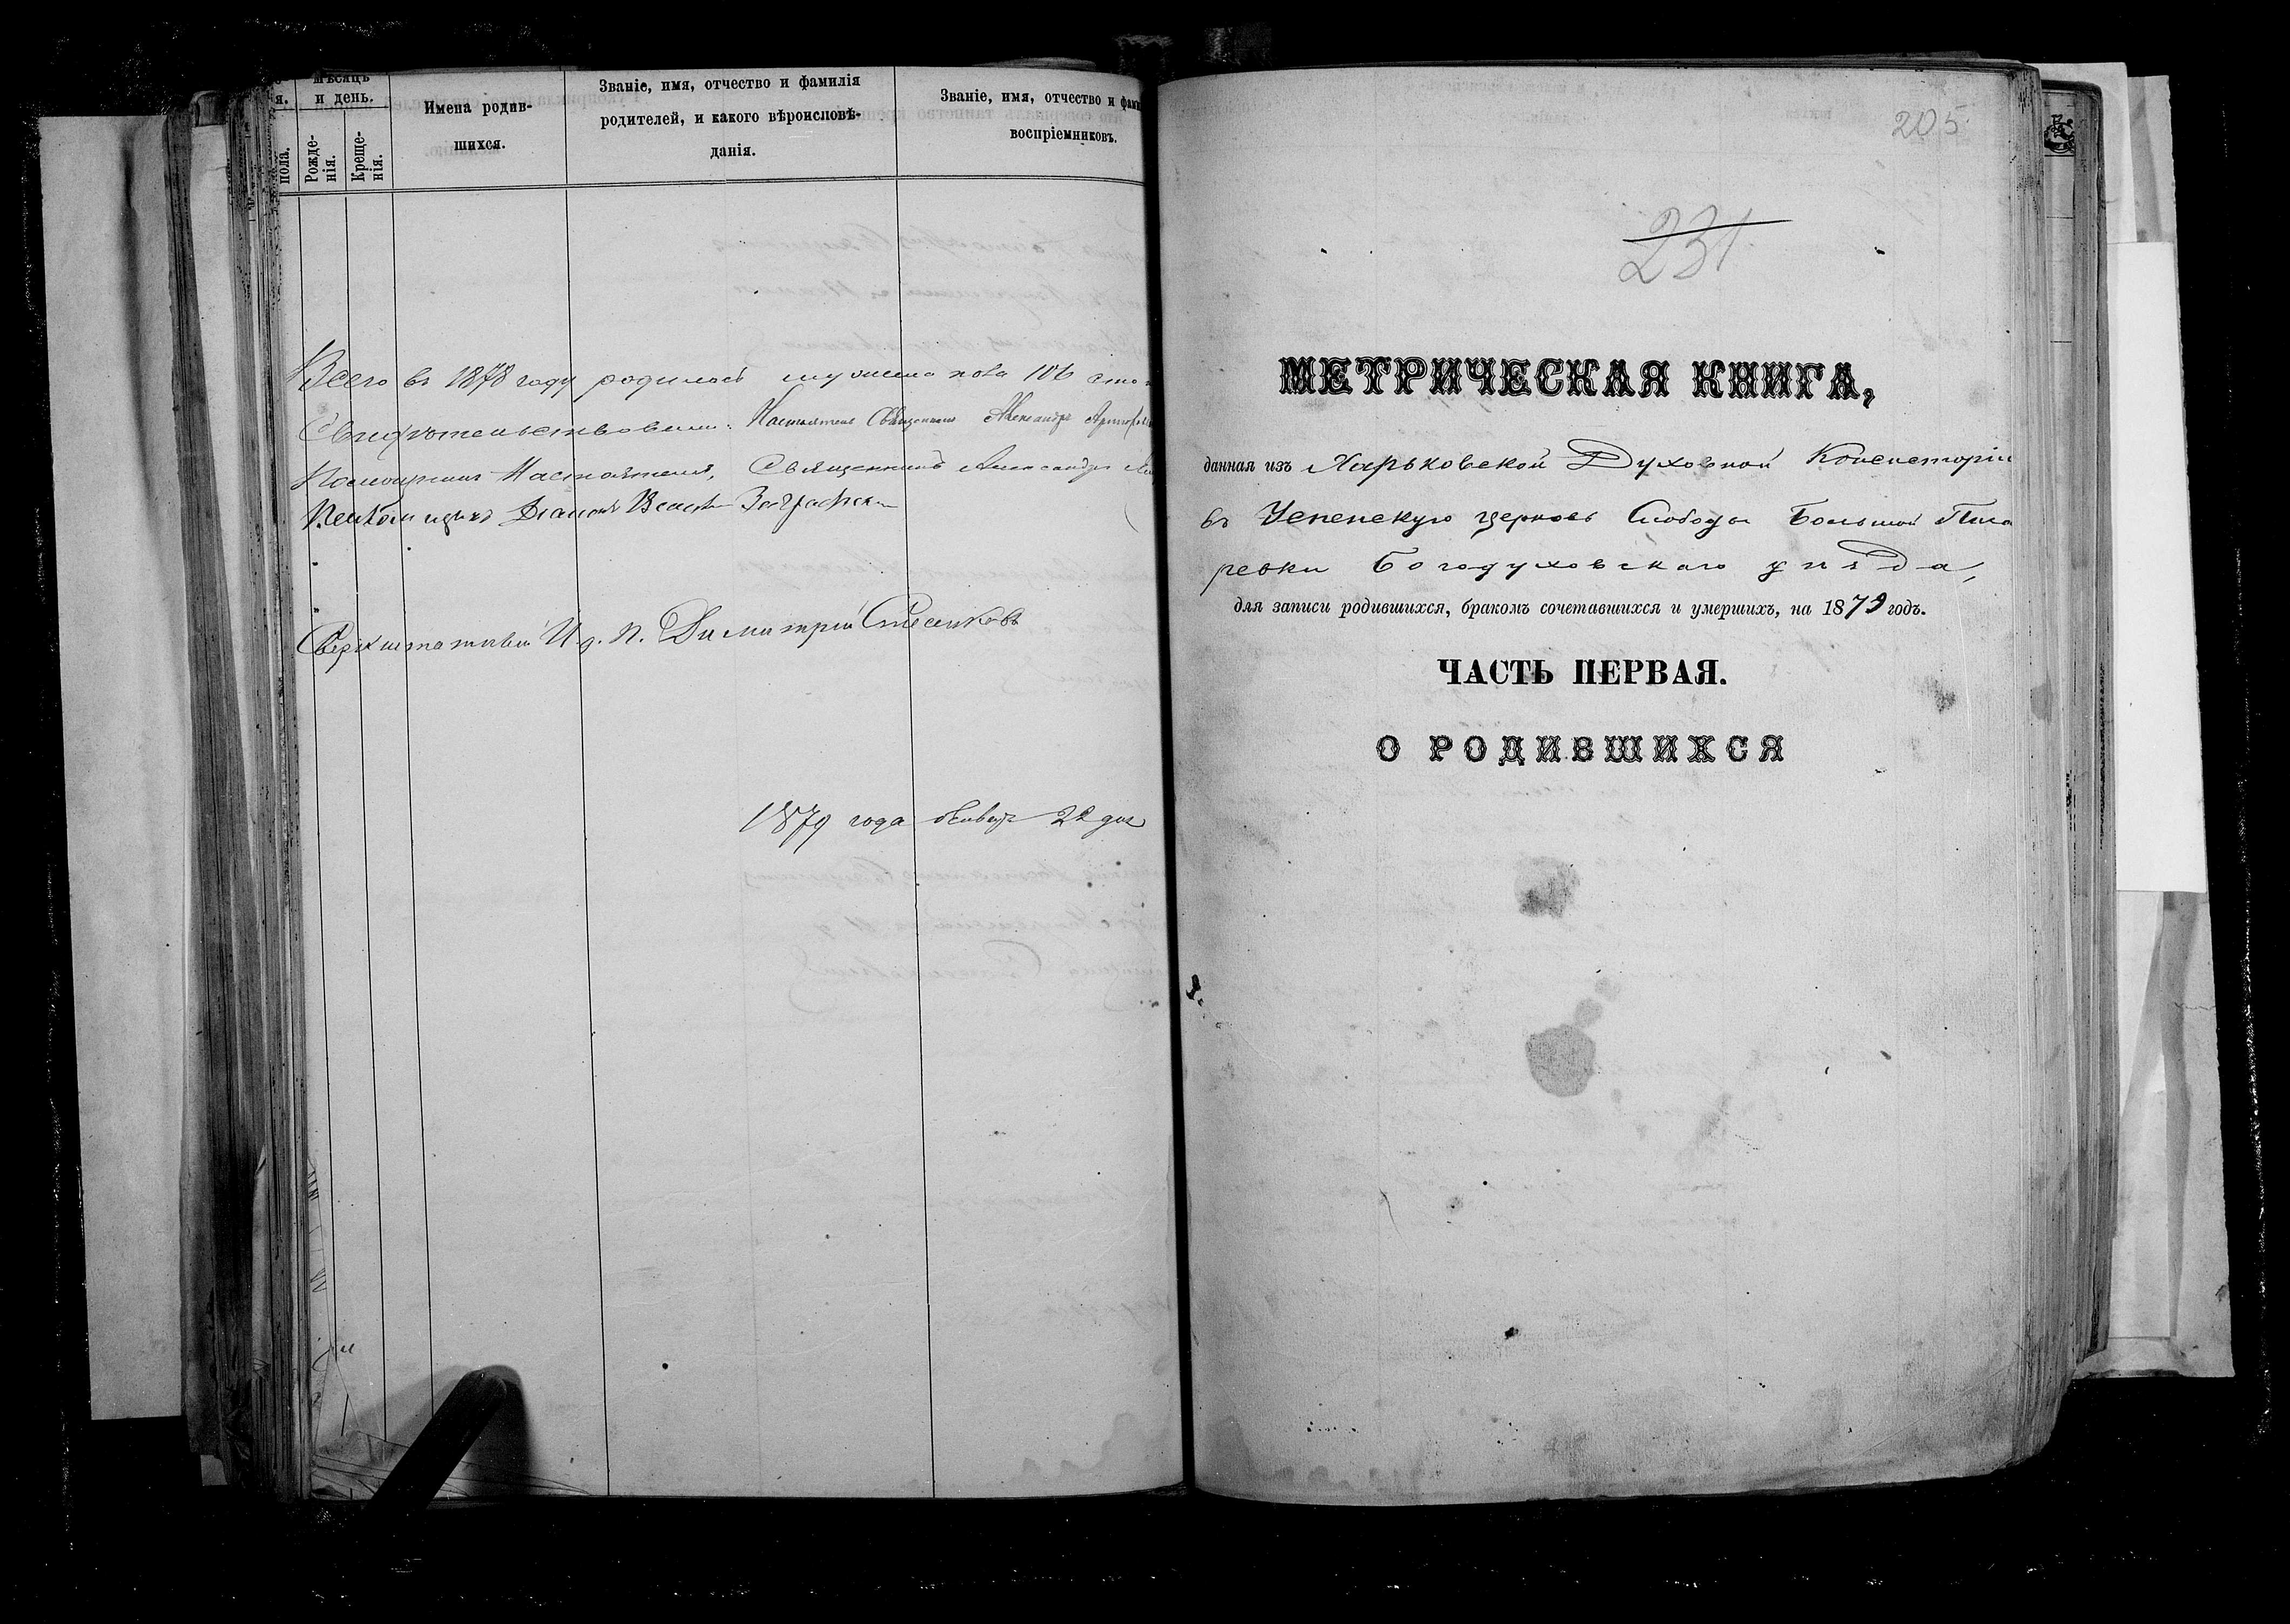 мѣсяцъ
и день.
пола.
Рожде-
нія.
Креще-
нія.
Имена родив-
шихся.
Званіе, имя, отчество и фамилія
родителей, и какого вѣроисповѣ-
данія.
Званіе, имя, отчество и фами
воспріемниковъ.
Всего въ 1878 году родилось мужеска пола 106 сто
Свидѣтельствовали: Настоятель Священникъ Александръ
Помощникъ Настоятеля, Священникъ Александръ
Діаконъ
Сверхштатный И. д. П. Димитрій
1879 года Января 22 дня
205
231
МЕТРИЧЕСКАЯ КНИГА,
данная изъ Харьковской Духовной Консисторіи
въ Успенскую церковь Слободы Большой Писа
ревки Богодуховскаго уѣзда,
для записи родившихся, бракомъ сочетавшихся и умершихъ, на 1879 годъ.
ЧАСТЬ ПЕРВАЯ.
О РОДИВШИХСЯ